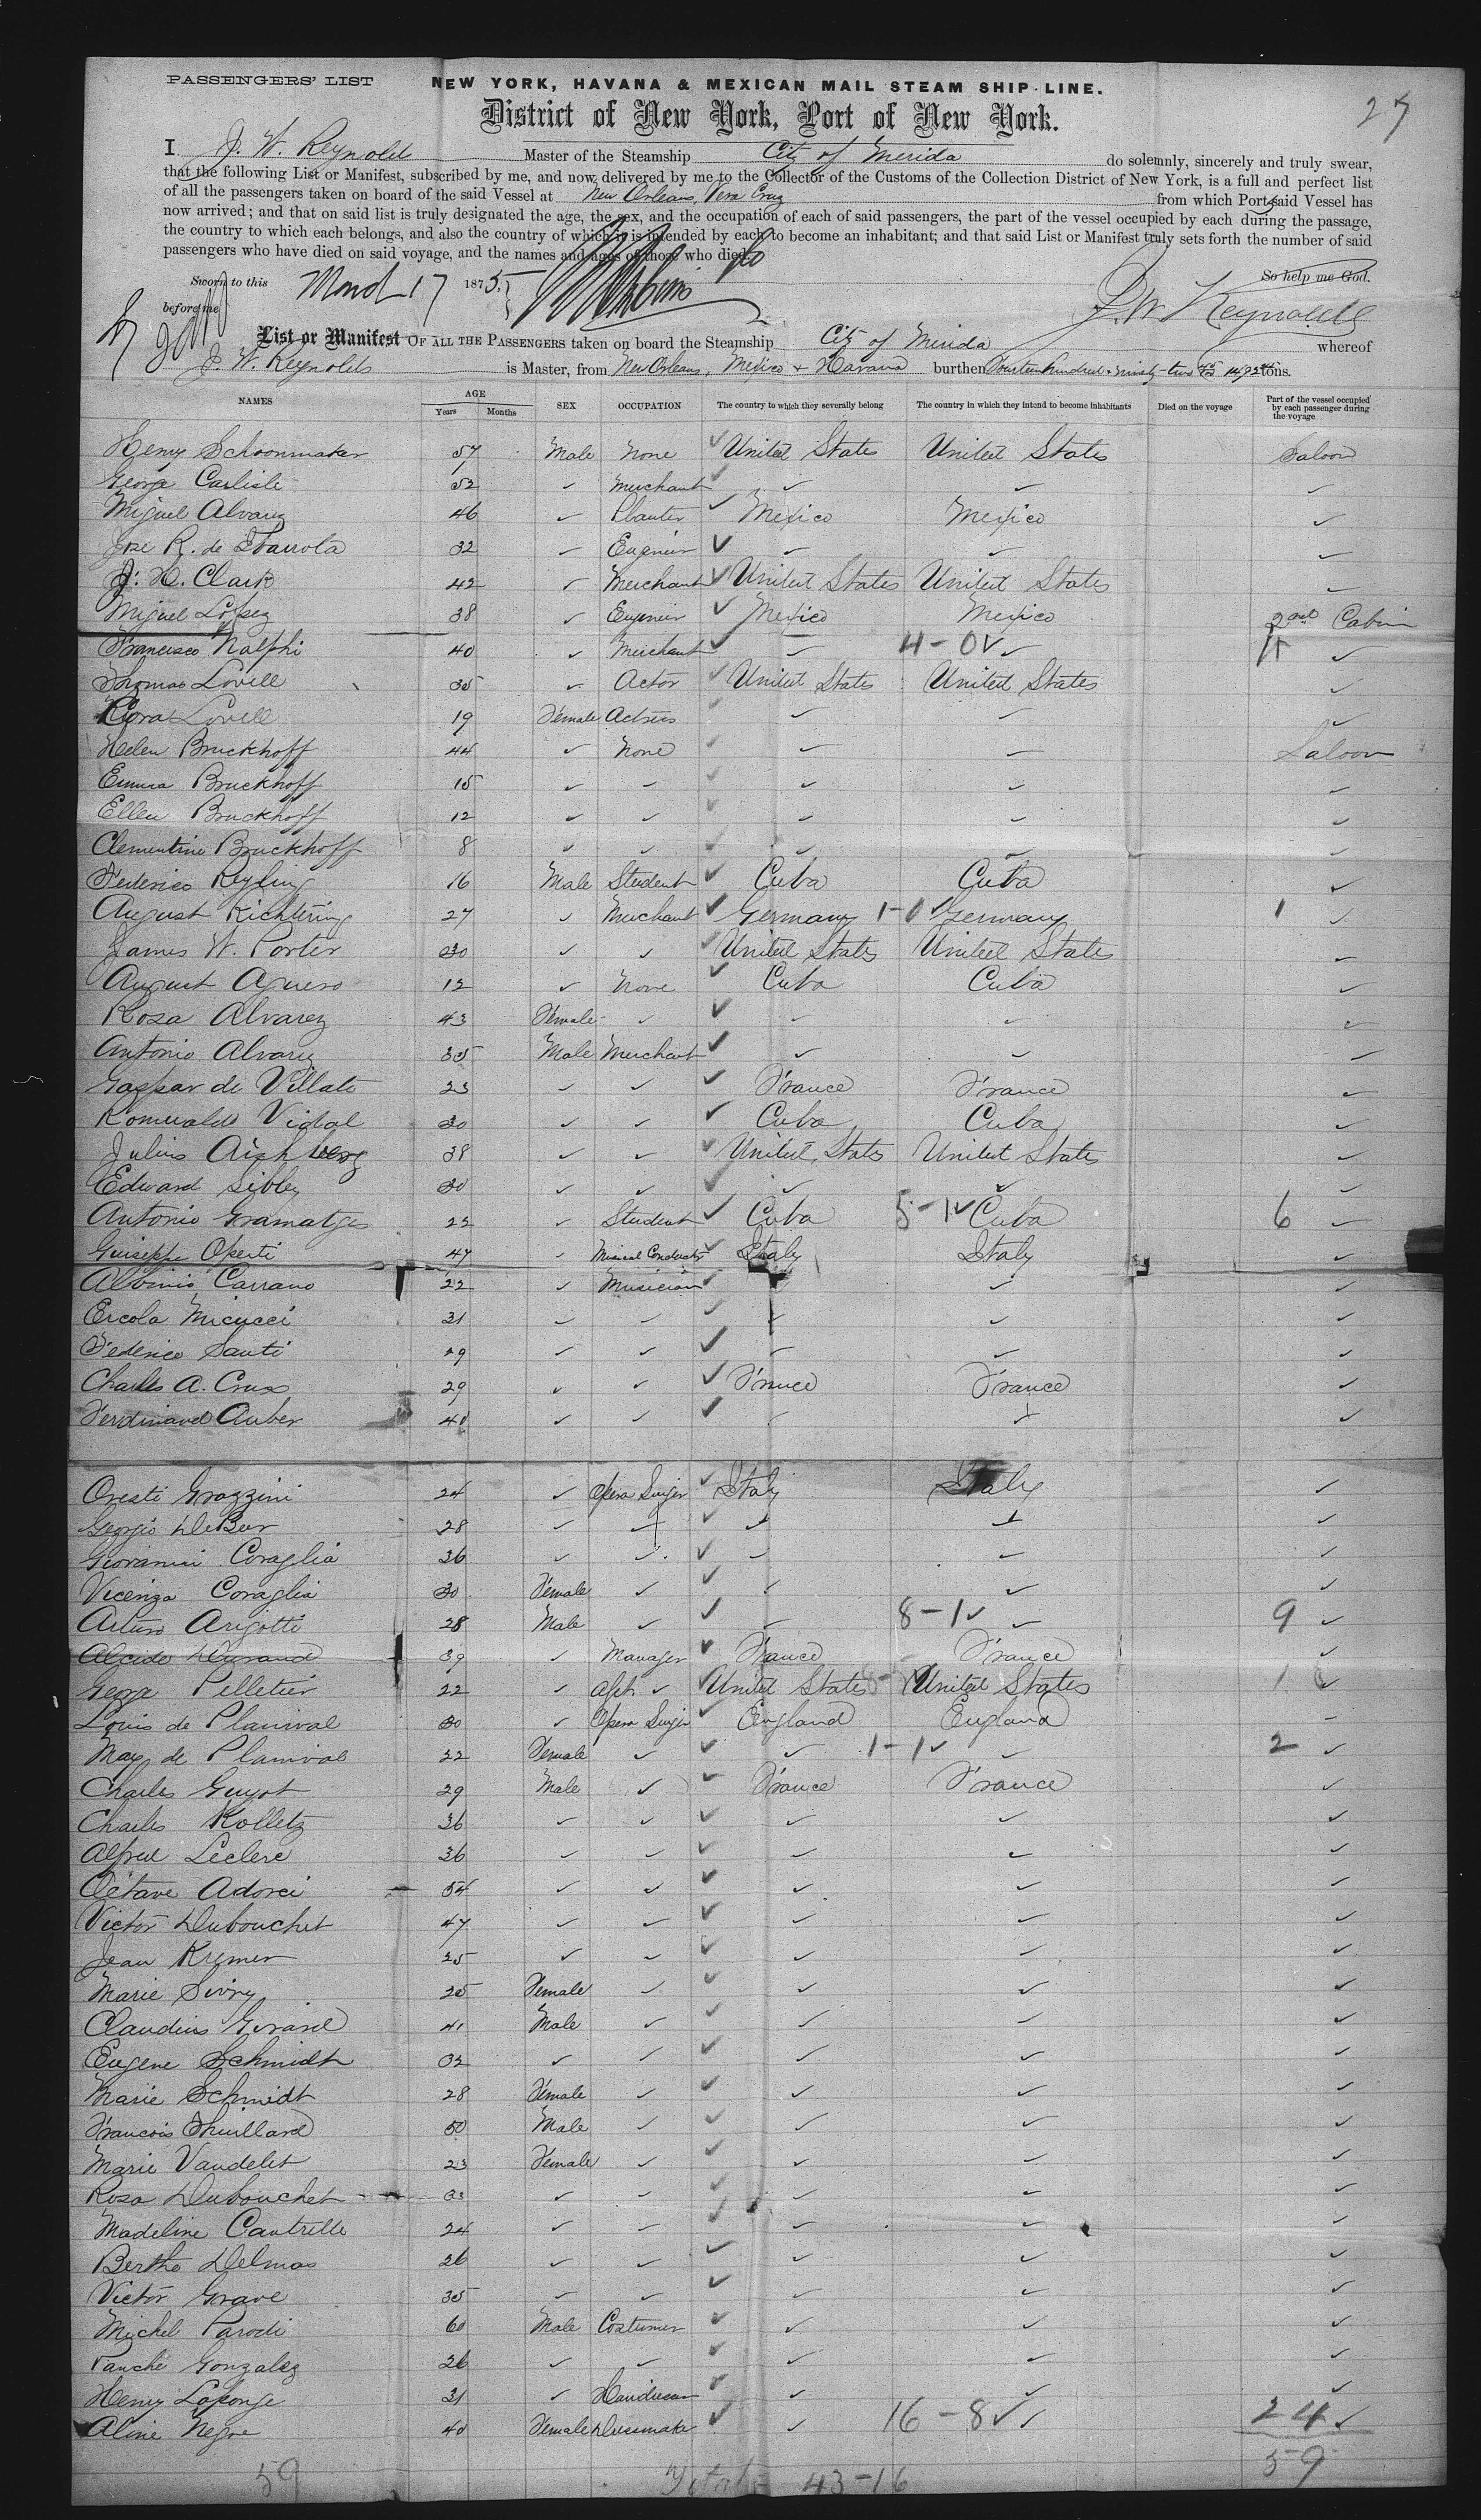 PASSENGERS' LIST NEW YORK, HAVANA & MEXICAN MAIL STEAM SHIP LINE.
27
District of New York, Port of New York.
I J. W. Reynolds Master of the Steamship City of Merida do solemnly, sincerely and truly swear,
that the following List or Manifest, subscribed by me, and now delivered by me to the Collector of the Customs of the Collection District of New York, is a full and perfect list
of all the passengers taken on board of the said Vessel at New Orleans, Vera Cruz from which Port said Vessel has
now arrived; and that on said list is truly designated the age, the sex, and the occupation of each of said passengers, the part of the vessel occupied by each during the passage,
the country to which each belongs, and also the country of which it is intended by each to become an inhabitant; and that said List or Manifest truly sets forth the number of said
passengers who have died on said voyage, and the names and ages of those who died.
So help me God.
Sworn to this March 17 1875,
before me J. W. Reynolds
List or Manifest OF ALL THE PASSENGERS taken on board the Steamship City of Merida whereof
J. W. Reynolds is Master, from New Orleans, Mexico & Havana burthen Fourteen hundred & ninety-two tons.
NAMES AGE Years Months SEX OCCUPATION The country to which they severally belong The country in which they intend to become inhabitants Died on the voyage Part of the vessel occupied by each passenger during the voyage
Henry Schoonmaker 57 Male None ✓ United States United States Saloon
George Carlisle 52 ✓ Merchant ✓ ✓ ✓ ✓
Miguel Alvarez 46 ✓ Planter ✓ Mexico Mexico ✓
Jose R. de Ibarrola 32 ✓ Engineer ✓ ✓ ✓ ✓
J. H. Clark 42 ✓ Merchant ✓ United States United States ✓
Miguel Lopez 38 ✓ Engineer ✓ Mexico Mexico 2nd Cabin
Francisco Nalphi 40 ✓ Merchant ✓ ✓ 4-0 ✓ ✓ ✓
Thomas Lovell 35 ✓ Actor ✓ United States United States ✓
Cora Lovell 19 Female Actress ✓ ✓ ✓ ✓
Helen Bruckhoff 44 ✓ None ✓ ✓ ✓ Saloon
Emma Bruckhoff 15 ✓ ✓ ✓ ✓ ✓ ✓
Ellen Bruckhoff 12 ✓ ✓ ✓ ✓ ✓ ✓
Clementine Bruckhoff 8 ✓ ✓ ✓ ✓ ✓ ✓
Federico Reyling 16 Male Student ✓ Cuba Cuba ✓
August Richtering 27 ✓ Merchant ✓ Germany 1-0 ✓ Germany 1 ✓
James W. Porter 30 ✓ ✓ ✓ United States United States ✓
August Aguero 12 ✓ None ✓ Cuba Cuba ✓
Rosa Alvarez 43 Female ✓ ✓ ✓ ✓ ✓
Antonio Alvarez 35 Male Merchant ✓ ✓ ✓ ✓
Gaspar de Villate 23 ✓ ✓ ✓ France France ✓
Romualdo Vidal 30 ✓ ✓ ✓ Cuba Cuba ✓
Julius Aichberg 38 ✓ ✓ ✓ United States United States ✓
Edward Sibley 30 ✓ ✓ ✓ ✓ ✓ ✓
Antonio Gramatges 22 ✓ Student ✓ Cuba 5-1 ✓ Cuba 6 ✓
Guiseppe Operti 47 ✓ Musical Conductor ✓ Italy Italy ✓
Albinio Carrano 22 ✓ Musician ✓ ✓ ✓
Ercola Micucci 31 ✓ ✓ ✓ ✓ ✓ ✓
Federico Santi 29 ✓ ✓ ✓ ✓ ✓ ✓
Charles A. Crux 29 ✓ ✓ ✓ France France ✓
Ferdinand Auber 40 ✓ ✓ ✓ ✓ ✓ ✓
Oresti Grazzini 24 ✓ Opera Singer ✓ Italy Italy ✓
Georgio DeBeer 28 ✓ ✓ ✓ ✓ ✓ ✓
Giovanni Coraglia 36 ✓ ✓ ✓ ✓ ✓ ✓
Vicenza Coraglia 30 Female ✓ ✓ ✓ ✓ ✓
Arturo Arigotti 28 Male ✓ ✓ ✓ 8-1 ✓ ✓ 9 ✓
Alcide Durand 39 ✓ Manager ✓ France France ✓
George Pelletier 22 ✓ ✓ ✓ United States United States 1 ✓
Louis de Planival 30 ✓ Opera Singer ✓ England England ✓
May de Planival 22 Female ✓ ✓ ✓ 1-1 ✓ ✓ 2 ✓
Charles Guyot 29 Male ✓ ✓ France France ✓
Charles Kolletz 36 ✓ ✓ ✓ ✓ ✓ ✓
Alfred Leclere 36 ✓ ✓ ✓ ✓ ✓ ✓
Octave Adorci 54 ✓ ✓ ✓ ✓ ✓ ✓
Victor Dubouchet 47 ✓ ✓ ✓ ✓ ✓ ✓
Jean Kremer 25 ✓ ✓ ✓ ✓ ✓ ✓
Marie Sivry 25 Female ✓ ✓ ✓ ✓ ✓
Claudius Girard 41 Male ✓ ✓ ✓ ✓ ✓
Eugene Schmidt 32 ✓ ✓ ✓ ✓ ✓ ✓
Marie Schmidt 28 Female ✓ ✓ ✓ ✓ ✓
Francois Thuillard 50 Male ✓ ✓ ✓ ✓ ✓
Marie Vaudelet 23 Female ✓ ✓ ✓ ✓ ✓
Rosa Dubouchet 33 ✓ ✓ ✓ ✓ ✓ ✓
Madeline Cautrelle 24 ✓ ✓ ✓ ✓ ✓ ✓
Berthe Delmas 26 ✓ ✓ ✓ ✓ ✓ ✓
Victor Grave 35 ✓ ✓ ✓ ✓ ✓ ✓
Michel Parodi 60 Male Costumer ✓ ✓ ✓ ✓
Panche Gonzalez 26 ✓ ✓ ✓ ✓ ✓ ✓
Henry Laponge 31 ✓ ✓ ✓ ✓ ✓
Aline Negre 40 Female Dressmaker ✓ ✓ 16-8 ✓ ✓ 24 ✓
59 Total 43-16 59